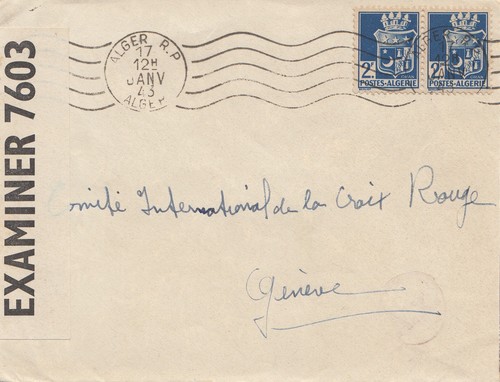 ALGER R.P
17
12H
JANV
43
ALGER
2F
POSTES-ALGERIE
2F
POSTES-ALGERIE
EXAMINER 7603
Comité International de la Croix Rouge
Genève